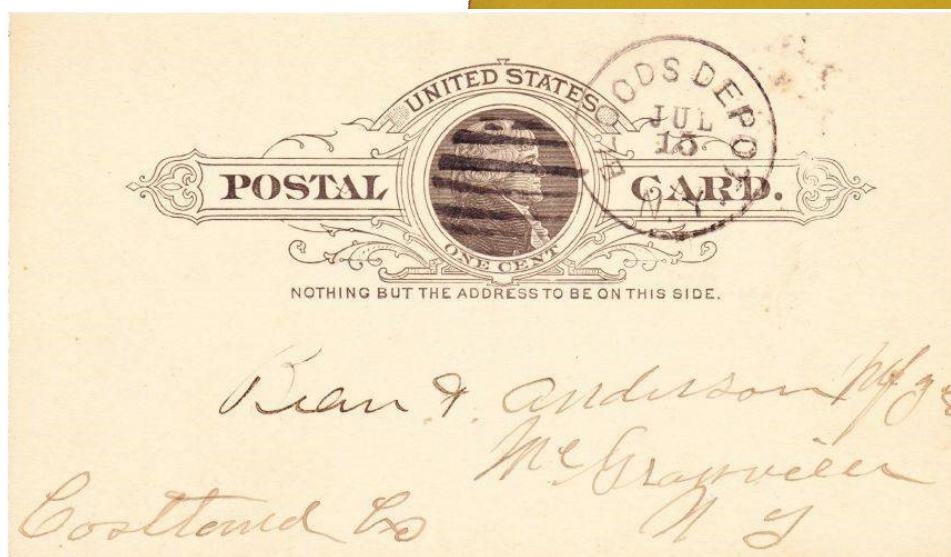 UNITED STATES
POSTAL CARD.
ONE CENT
NOTHING BUT THE ADDRESS TO BE ON THIS SIDE.
BLOODS DEPOT
JUL
15
N.Y.
Bean & Anderson Mfgs
McGrawville
Cortland Co N Y